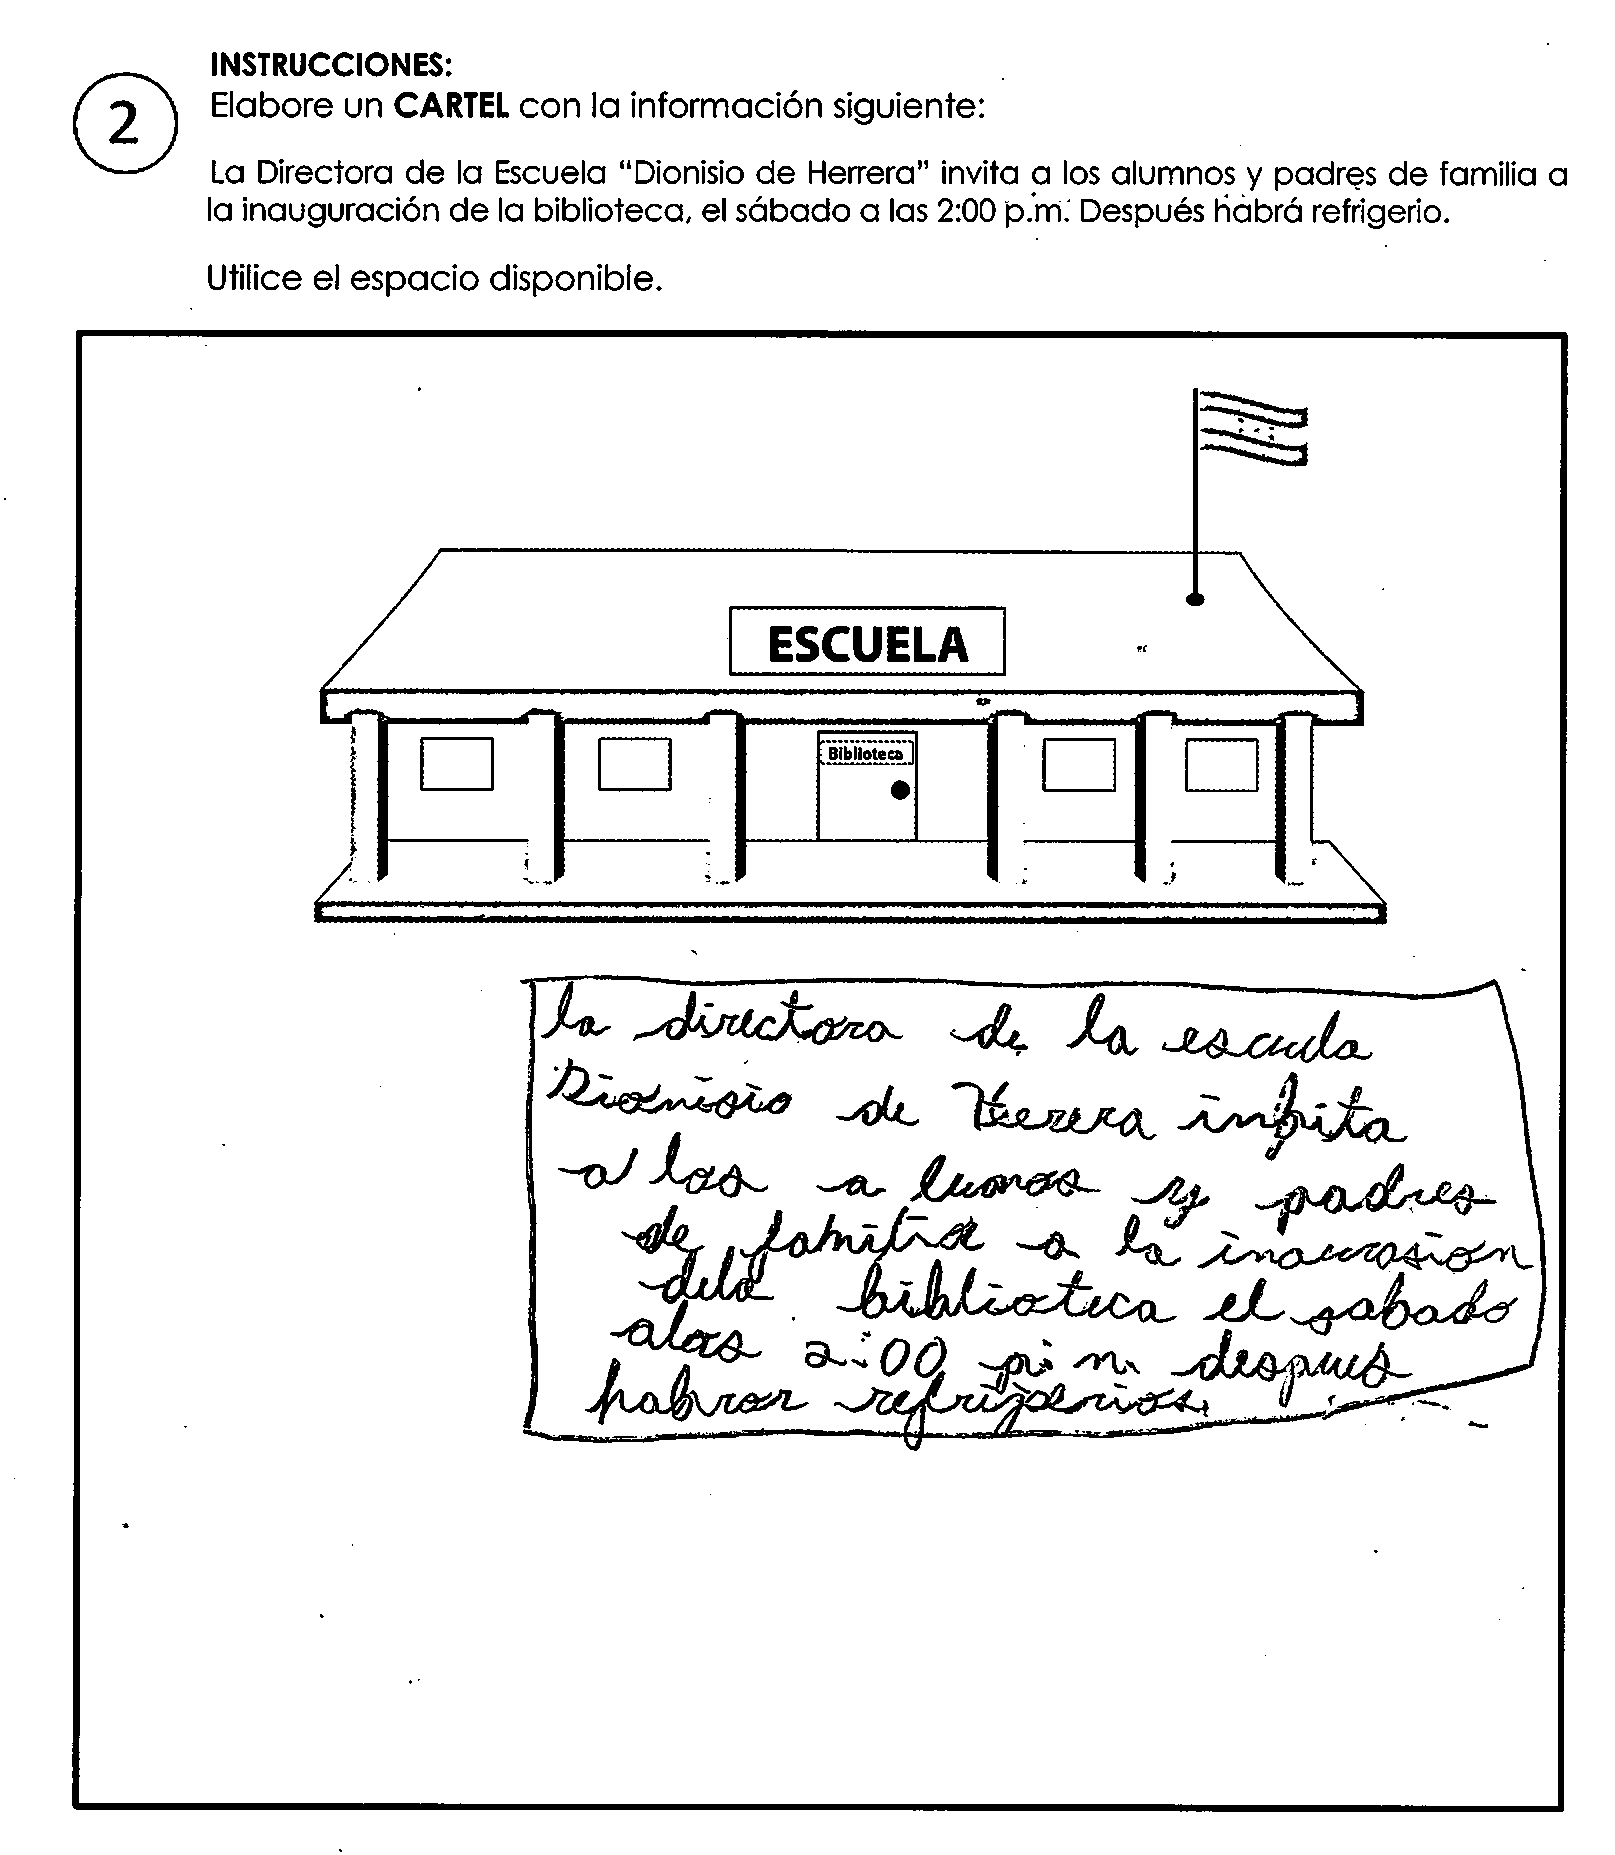 INSTRUCCIONES:
2
Elabore un CARTEL con la información siguiente:
La Directora de la Escuela “Dionisio de Herrera” invita a los alumnos y padres de familia a
la inauguración de la biblioteca, el sábado a las 2:00 p.m. Después habrá refrigerio.
Utilice el espacio disponible.
ESCUELA
Biblioteca
la directora de la escuela
Dionisio de Herera inbita
a los a lumnos y padres
de familia a la inaurasion
dela biblioteca el sabado
alas 2:00 p.m. despues
habrar refrigerios.